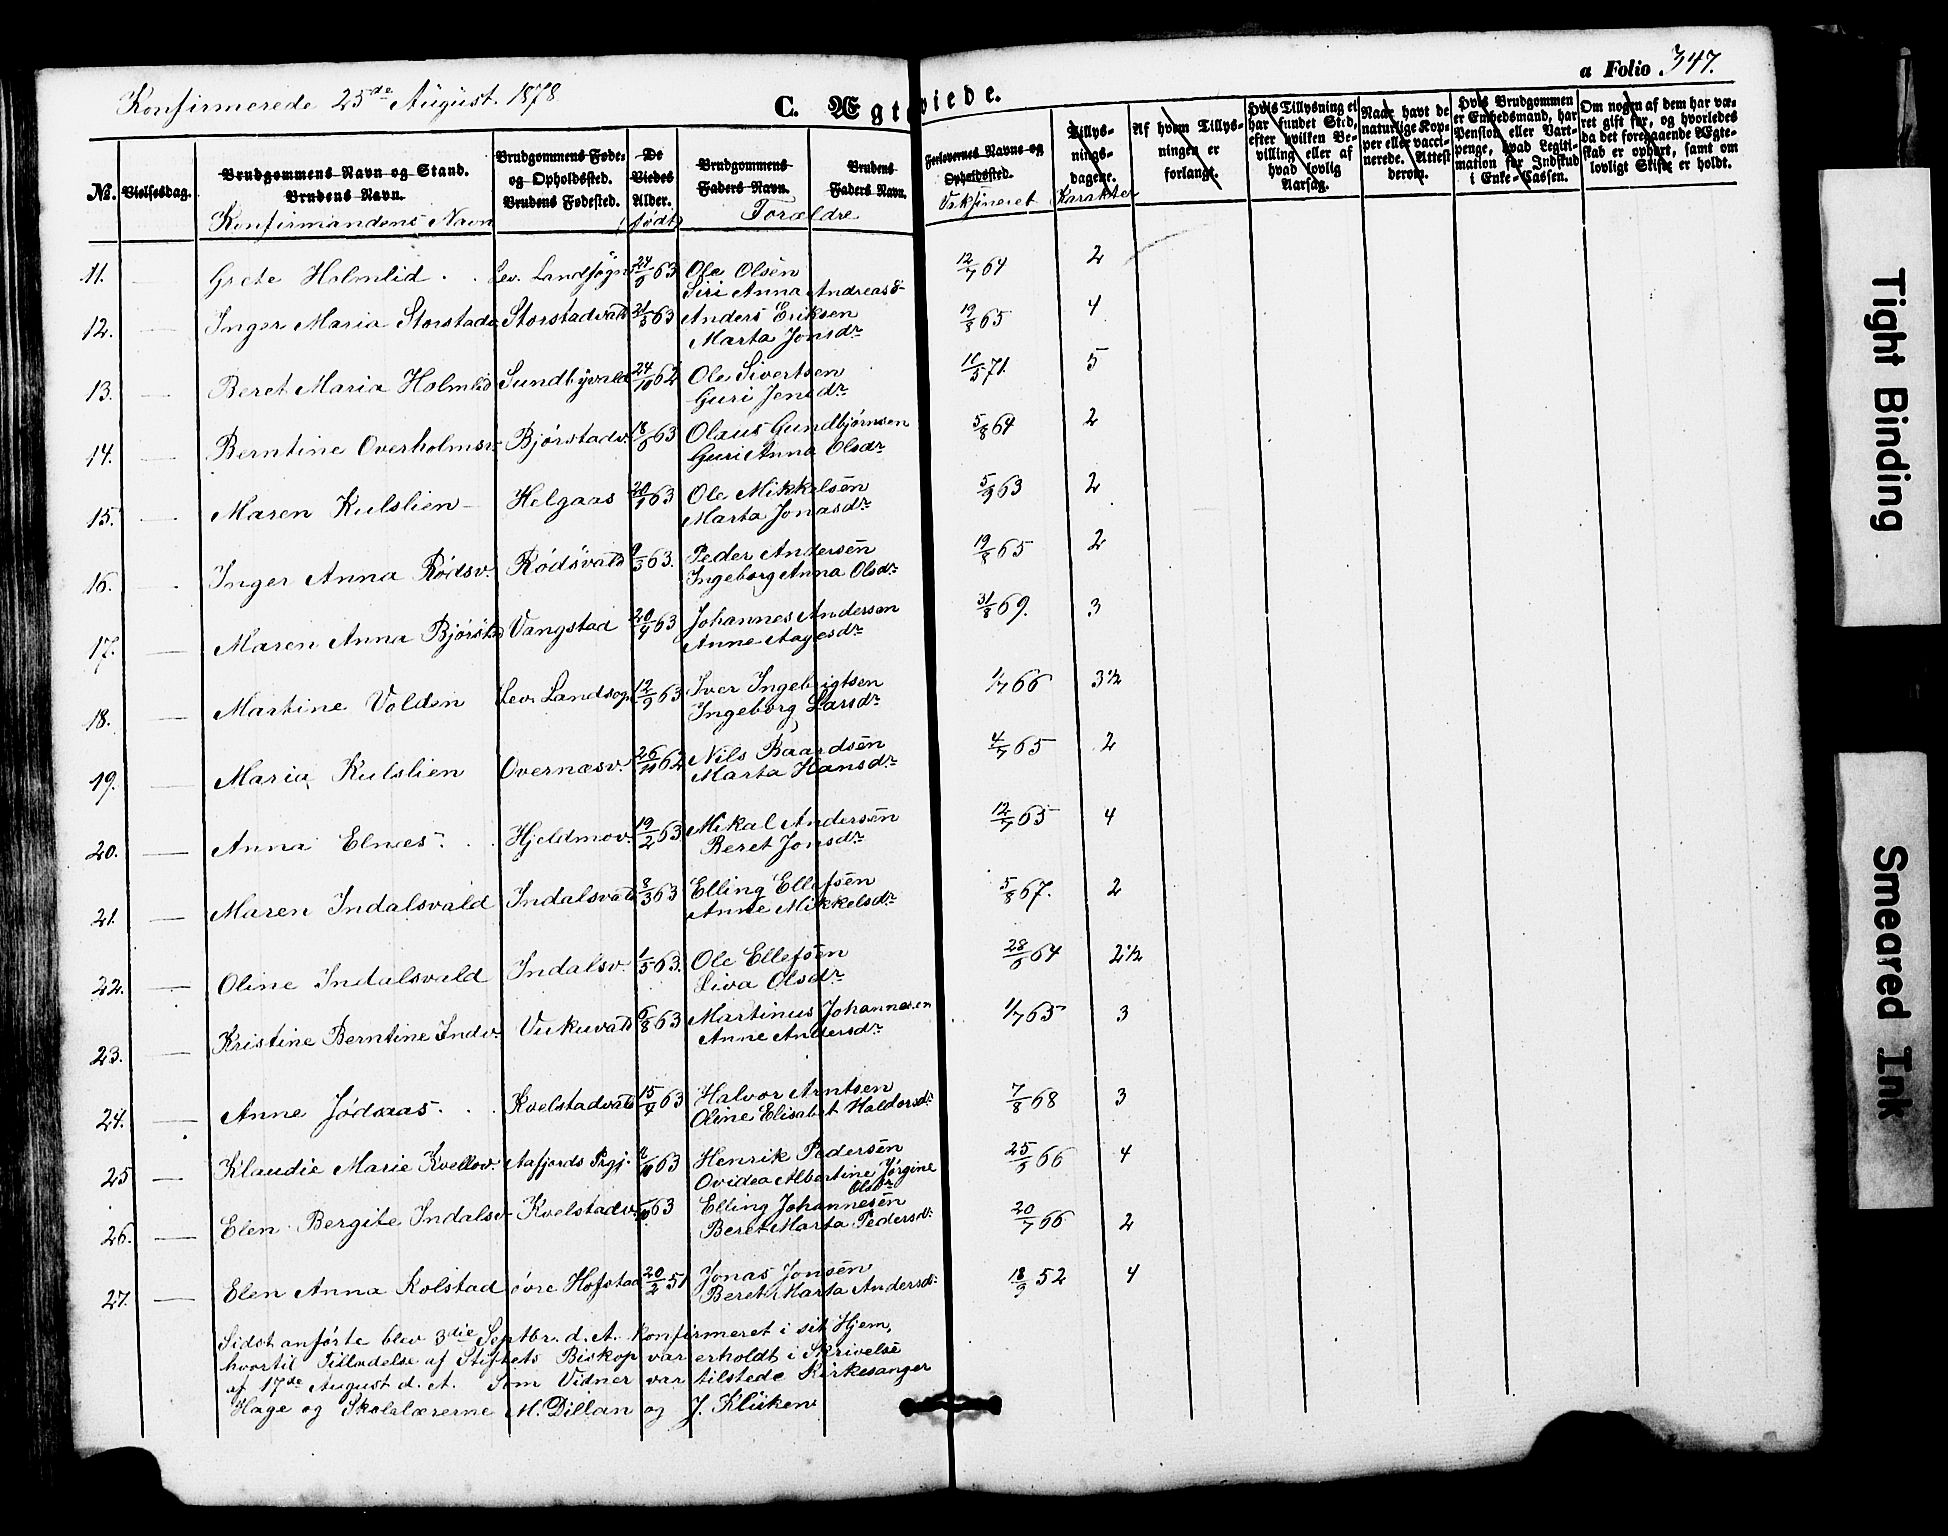 Konfirmerede 25de August. 1878
C. Ægteviede.
a Folio 347.
No. Vielsesdag. Brudgommens Navn og Stand. Brudens Navn. Brudgommens Føde- og Opholdssted. Brudens Fødested. De Viedes Alder. Brudgommens Faders Navn. Brudens Faders Navn. Forlovernes Navne og Opholdssted. Tillys-nings-dagene. Af hvem Tillys-ningen er forlangt. Hvis Tillysning ei har fundet Sted, efter hvilken Be-villing eller af hvad lovlig Aarsag. Naar havt de naturlige Kop-per eller vacci-nerede. Attest derom. Hvis Brudgommen er Enkedsmand, har Pension eller Vart-penge, hvad Legiti-mation for Indskud i Enke-Cassen. Om nogen af dem har væ-ret gift før, og hvorledes da det foregaaende Ægte-skab er ophørt, samt om lovligt Skifte er holdt.
Konfirmandens Navn (født) Forældre Vaksineret Karakter
11. Grete Holmlid Lev. Landsogn 63 Ole Olsen 12/7 64 2
Siri Anna Andreasd.
12. Inger Maria Storstadv. Storstadvald 21/5 63 Anders Eriksen 19/8 65 4
Marta Jonsdr
13. Beret Maria Holmlid Sundbyvald 24/10 62 Ole Sivertsen 16/5 71. 5
Guri Jensdr
14. Berntine Overholmsv. Bjørstadv. 63 Olaus Gundbjørnsen 5/8 64 2
Guri Anna Olsdr
15. Maren Kulslien Helgaas 63 Ole Mikkelsen 5/9 63 2
Marta Jonasdr
16. Inger Anna Rødsv. Rødsvald 9/3 63. Peder Andersen 19/8 65 2
Ingeborg Anna Olsdr
17. Maren Anna Bjørst Vangstad 63 Johannes Andersen 31/8 69. 3
Anne Aagesdr
18. Martine Volden Lev. Landsogn 12/9 63 Iver Ingebrigtsen 1/7 66 3 1/2
Ingeborg Larsdr
19. Maria Kulslien Overnæsv. 26/11 62 Nils Baardsen 4/7 65 2
Marta Hansdr
20. Anna Elnæs Hjeldmov. 19/2 63 Mikal Andersen 12/7 65 4
Beret Jonsdr
21. Maren Indalsvald Indalsvald 8/3 63 Elling Ellefsen 5/8 67. 2
Anne Mikkelsdr
22. Oline Indalsvald Indalsv. 1/5 63. Ole Ellefsen 28/6 64 2 1/2
Liva Olsdr
23. Kristine Berntine Indv. Vukuvald 6/8 63 Martinus Johannesen 1/7 65 3
Anne Andersdr
24. Anne Jødaas Kvelstadvald 15/4 63 Halvor Arntsen 7/8 68 3
Oline Elisabet Haldorsdr
25 Klaudie Marie Kvellov. Aafjords Prgj. 63 Henrik Pedersen 25/5 66 4
Ovidea Albertine Jørgine
Olsdr
26. Elen Bergite Indalsv. Kvelstadv. 63 Elling Johannesen 20/7 66 2
Beret Marta Pedersdr
27. Elen Anna Kolstad øvre Hofstad 20/2 51 Jonas Jonsen 18/9 52 4
Beret Marta Andersdr
Sidst anførte blev 3die Septbr. d. A. konfirmeret i sit Hjem,
hvortil Tilladelse af Stiftets Biskop var erholdt i Skrivelse
af 17de August d. A. Som Vidner var tilstede Kirkesanger
Hage og Skolelærerne M. Dillan og J. Klüken
Tight Binding
Smeared Ink